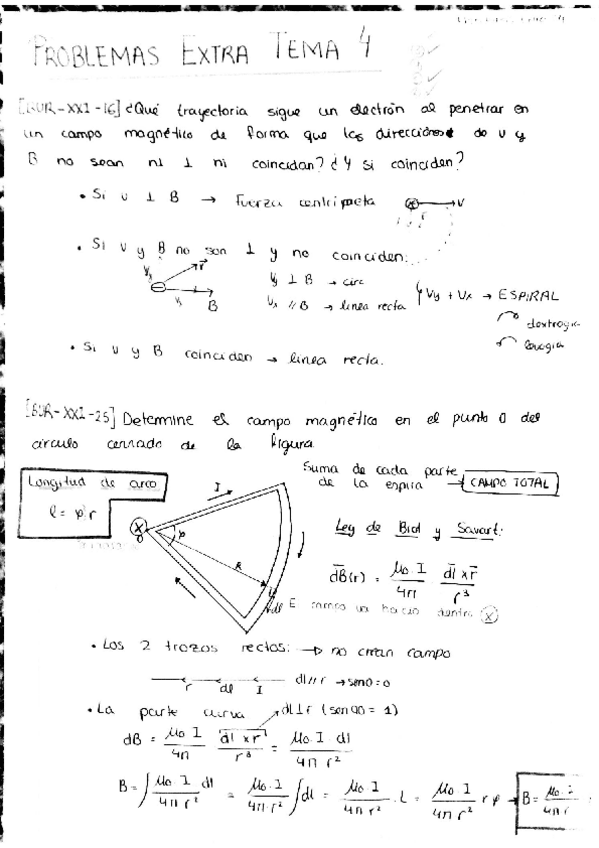 PROBLEMAS EXTRA TEMA 4
[BUR-XXI-16] ¿Qué trayectoria sigue un electrón al penetrar en
un campo magnético de forma que las direcciones de v y
B no sean ni ⊥ ni coincidan? ¿Y si coinciden?
• Si v ⊥ B → Fuerza centrípeta
v
r
• Si v y B no son ⊥ y no coinciden:
Vy ⊥ B → circ
Vx // B → linea recta
Vy + Vx → ESPIRAL
dextrogir
levogira
B
• Si v y B coinciden → linea recta.
[BUR-XXI-25] Determine el campo magnético en el punto O del
círculo cerrado de la figura.
Longitud de arco
l = φ r
Suma de cada parte
de la espira → CAMPO TOTAL
I
φ
R
dl
Ley de Biot y Savart:
dB(r) = μo·I / 4π dl x r / r³
El campo va hacia dentro ⊗
• Los 2 trozos rectos: → no crean campo
r dl I dl // r → sen0 = 0
• La parte curva → dl ⊥ r (sen 90 = 1)
dB = μo I / 4π dl x r / r³ = μo·I·dl / 4π r²
B = ∫ μo·I dl / 4π r² = μo·I / 4π·r² ∫ dl = μo I / 4π r² · L = μo I / 4π r² r φ → B =